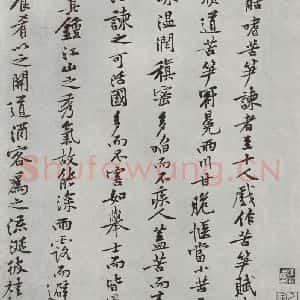 酷嗜苦笋諫者至十人戲作苦笋賦
道苦笋冠冕兩川甘脆愜當小苦
溫潤縝密多啗而不疾人蓋苦而
諫之可活國多而不害如舉士而皆
其鍾江山之秀氣故能深雨露而避
肴以之開道酒客為之流涎彼桂
Shufawang.CN